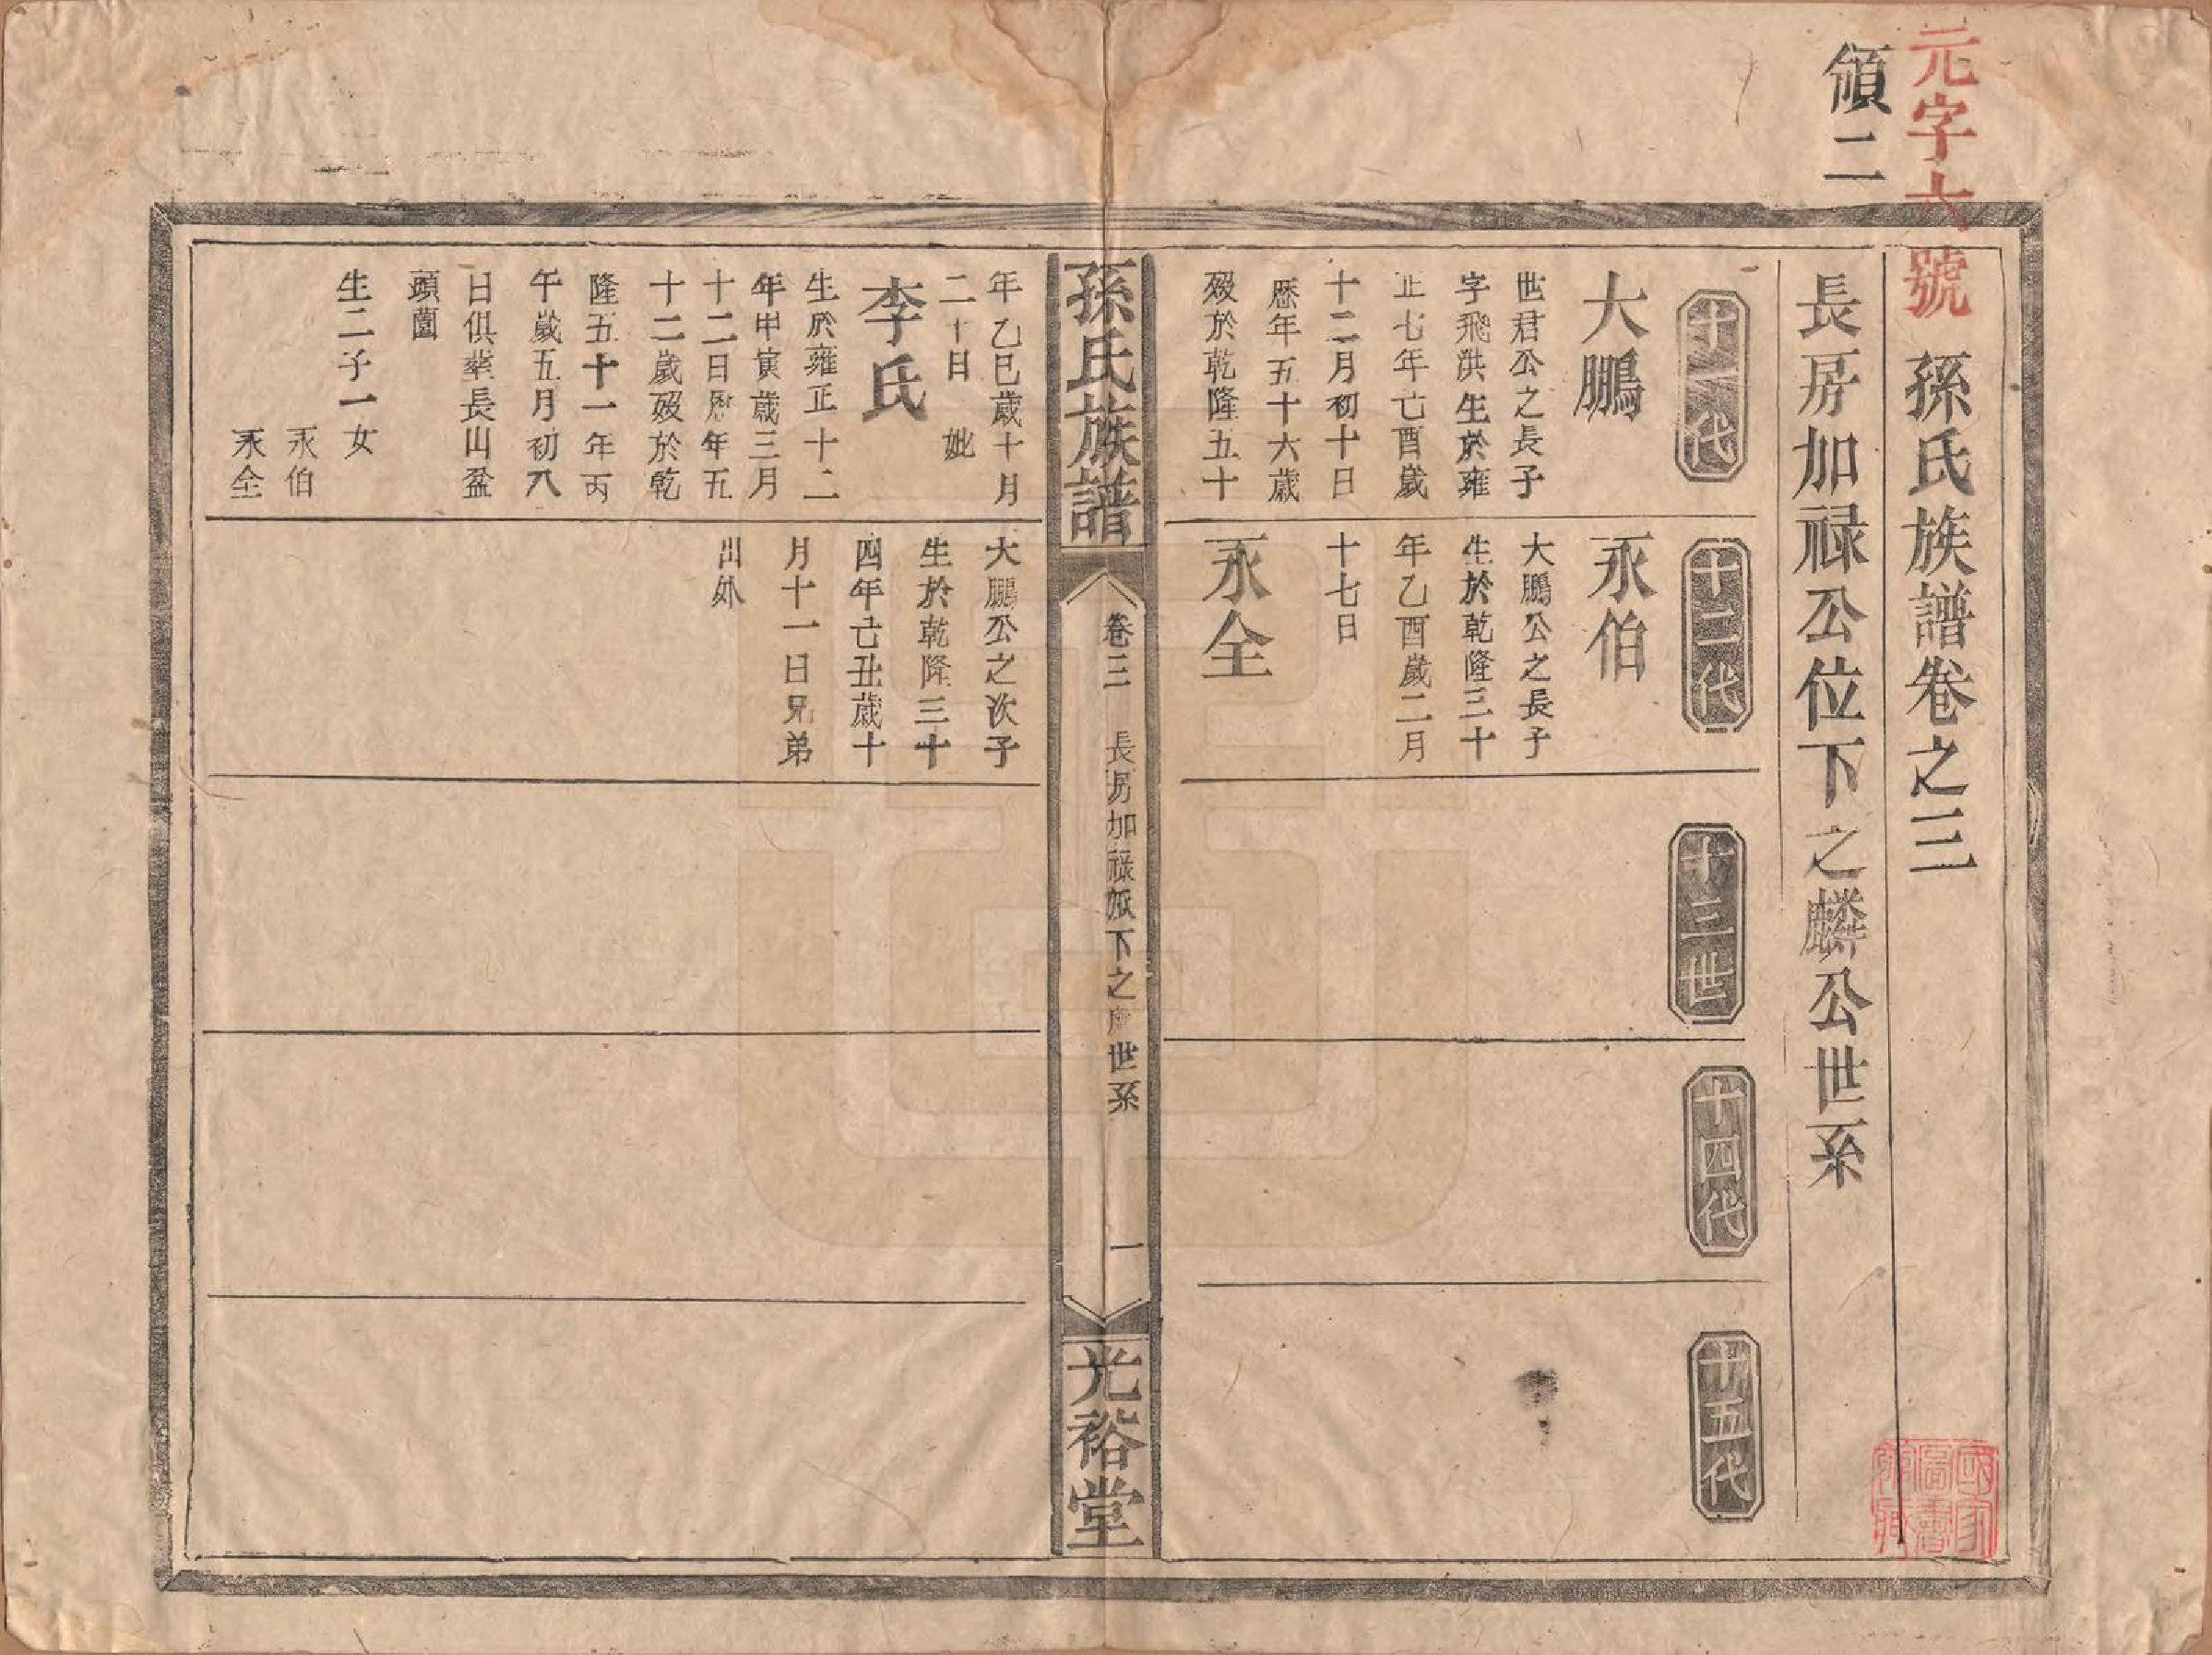 元字六號
領二
孫氏族譜卷之三
長房加禄公位下之麟公世系
十一代
大鵬
世君公之長子
字飛洪生於雍
正七年亡酉歲
十二月初十日
歷年五十六歲
殁於乾隆五十
十二代
永伯
大鵬公之長子
生於乾隆三十
年乙酉歲二月
十七日
永全
十三世
十四代
十五代
國家
圖書
館藏
孫氏族譜
卷三
長房加禄派下之 世系
一
光裕堂
年乙巳歲十月
二十日 妣
李氏
生於雍正十二
年甲寅歲三月
十二日歷年五
十二歲殁於乾
隆五十一年丙
午歲五月初八
日俱塟長山盆
頭薗
生二子一女
永伯
永全
大鵬公之次子
生於乾隆三十
四年亡丑歲十
月十一日兄弟
出外